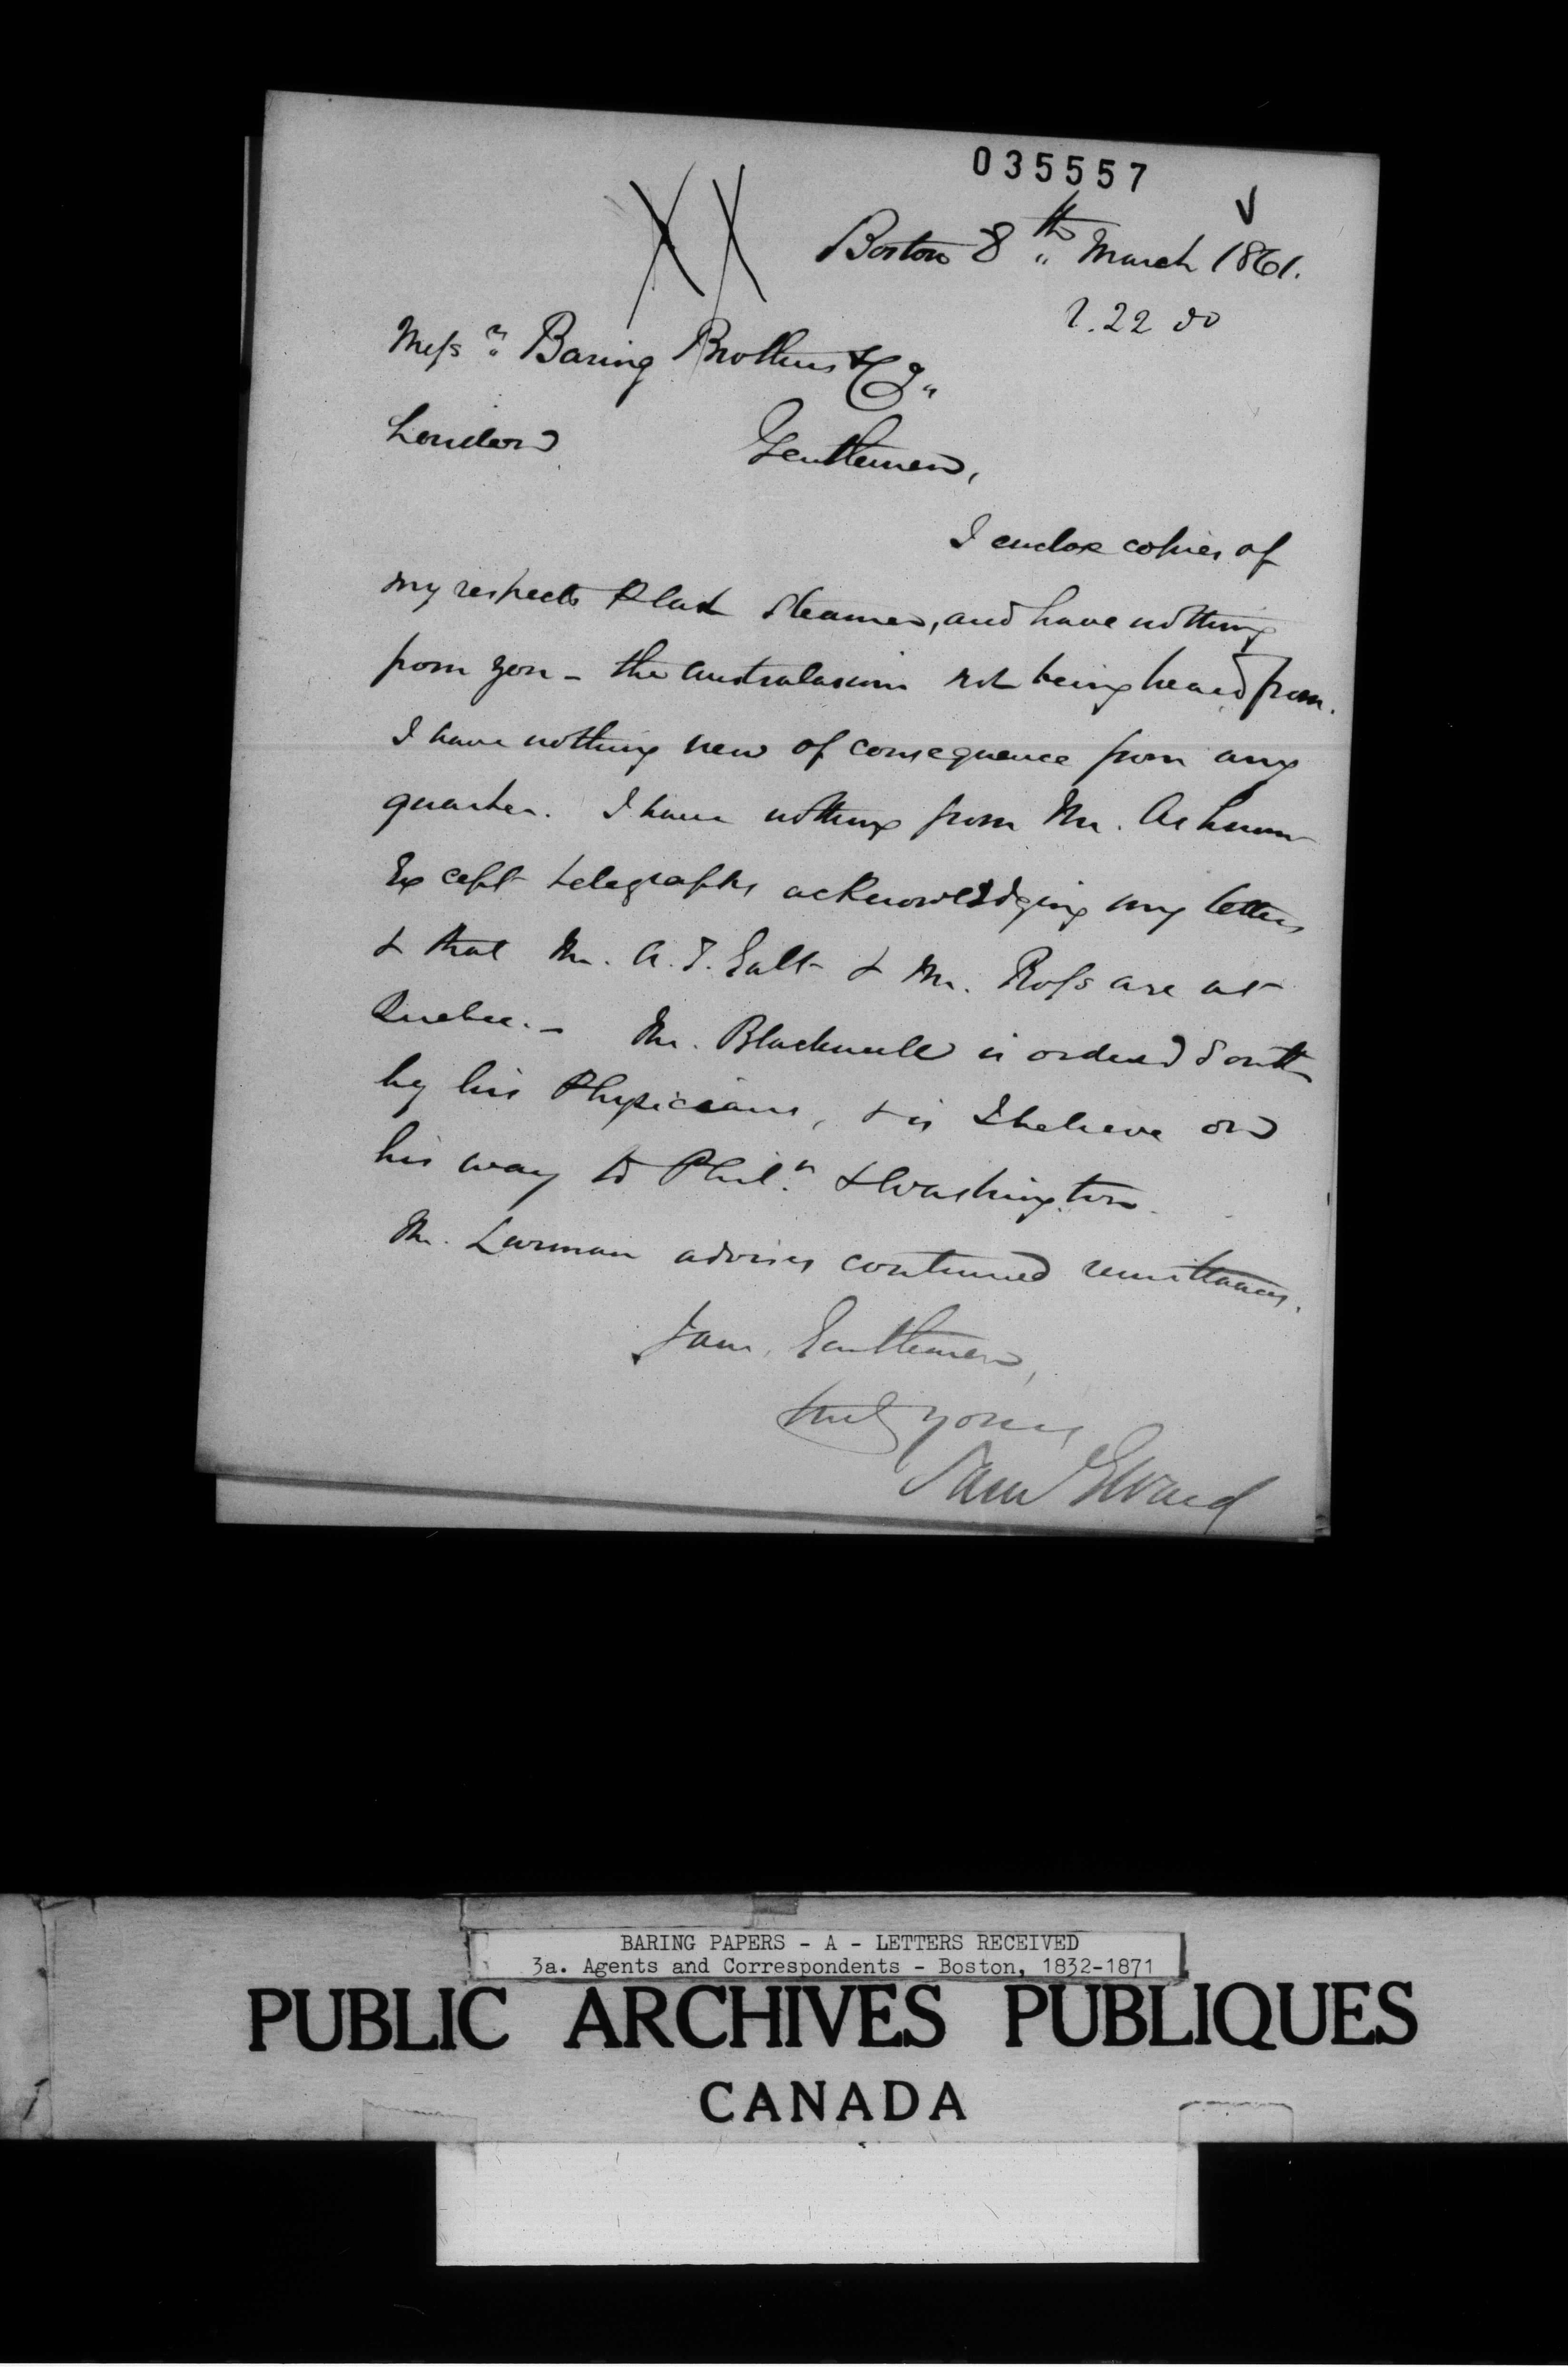 035557
Boston 8th March 1861.
r. 22 do
Messrs Baring Brothers & Co
London Gentlemen,
I enclose copies of
my respects P last Steamer, and have nothing
from you - the Australasian not being heard from.
I have nothing new of consequence from any
quarter. I have nothing from Mr.
Except telegraphs acknowledging my letters
& that Mr. A. T. Galt & Mr. Ross are at
Quebec. - Mr. Blackwell is ordered South
by his Physicians, & is I believe on
his way to Phila & Washington.
Mr. Lurman advises continued remittances.
I am, Gentlemen,
truly yours
Sam G Ward
BARING PAPERS - A - LETTERS RECEIVED
3a. Agents and Correspondents - Boston, 1832-1871
PUBLIC ARCHIVES PUBLIQUES
CANADA